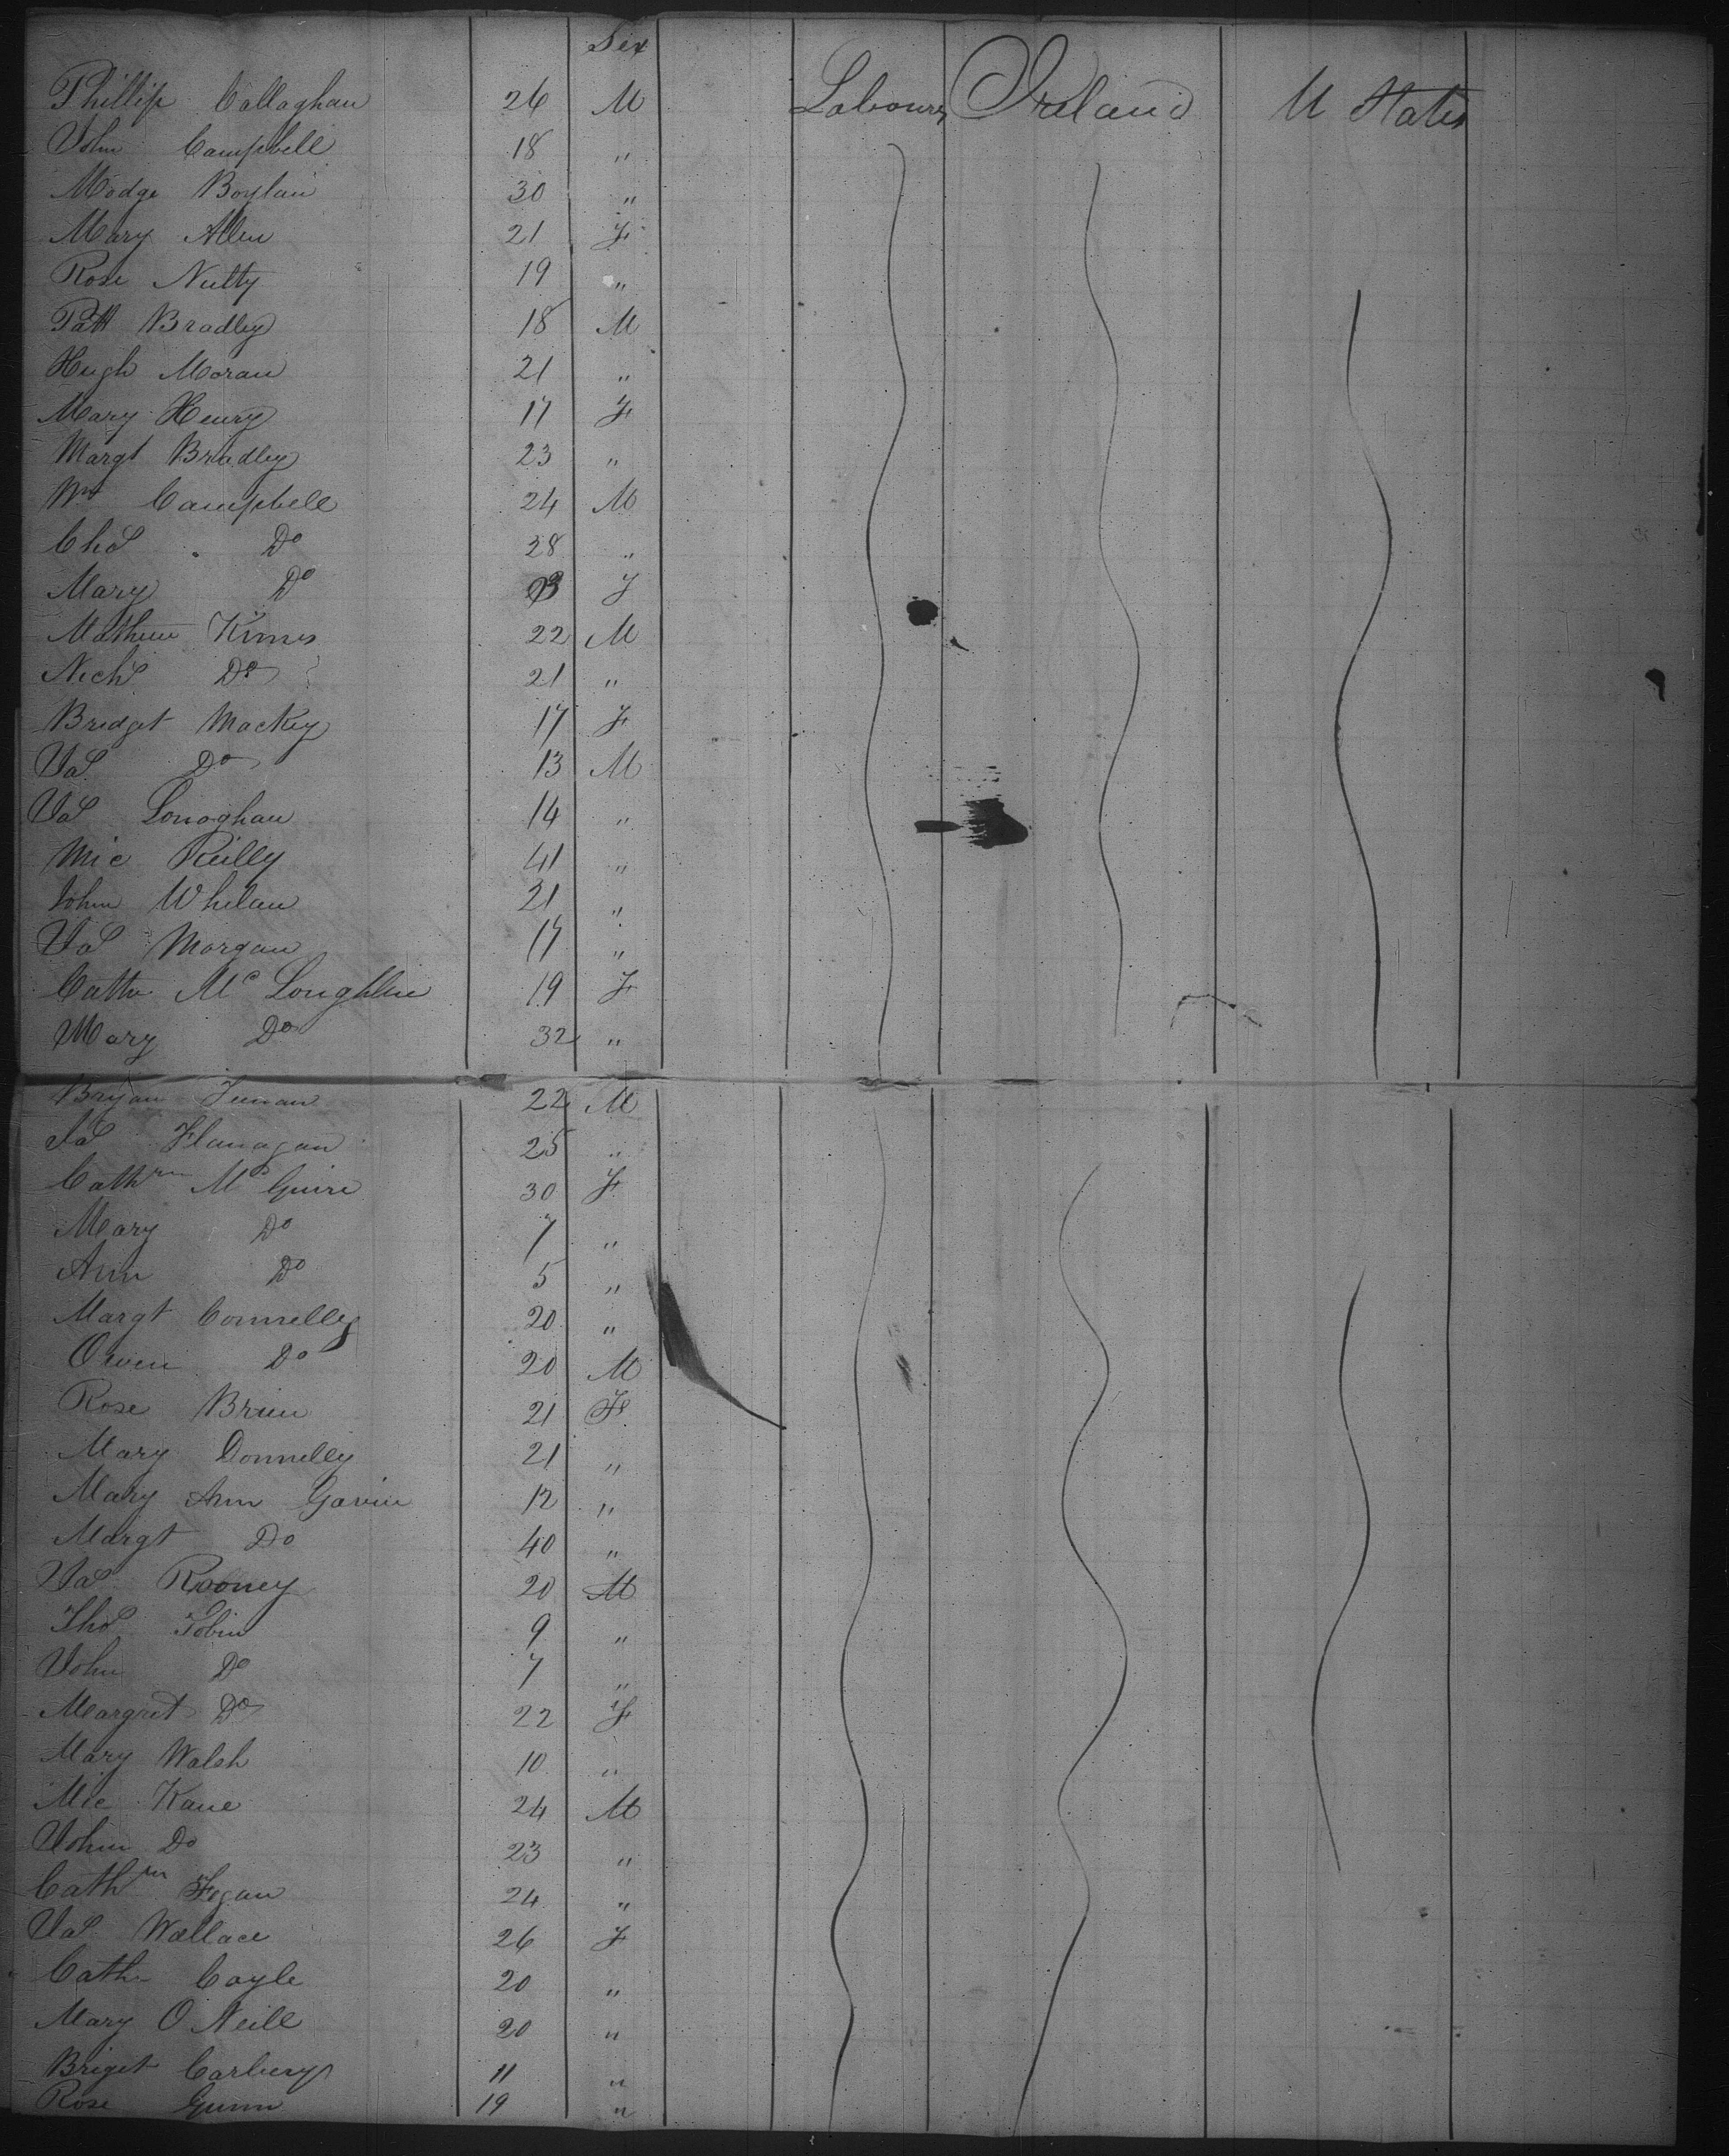 Sex
Phillip Callaghan 26 M Labourer Ireland U States
John Campbell 18 "
Modge Boylan 30 "
Mary Allen 21 F
Rose Nulty 19 "
Patt Bradley 18 M
Hugh Moran 21 "
Mary Henry 17 F
Margt Bradley 23 "
Wm Campbell 24 M
Chas Do 28 "
Mary Do F
Mathew 22 M
Nichs Do 21 "
Bridget Mackey 17 F
Jas Do 13 M
Jas Lonaghan 14 "
Mic Reilly 41 "
John Whelan 21 "
Jas Morgan 17 "
Cathe Mc Loughlin 19 F
Mary Do 32 "
Bryan 22 M
Jas Flanagan 25 "
Cathrn Mc Guire 30 F
Mary Do 7 "
Ann Do 5 "
Margt Connelly 20 "
Owen Do 20 M
Rose Brien 21 F
Mary Donnelly 21 "
Mary Ann Gavin 12 "
Margt Do 40 "
Jas Rooney 20 M
Thos Tobin 9 "
John Do 7 "
Margret Do 22 F
Mary Walsh 10 "
Mic Kane 24 M
John Do 23 "
Cathrn Fegan 24 "
Jas Wallace 26 F
Cath Coyle 20 "
Mary O Neill 20 "
Briget Carbery 11 "
Rose Gunn 19 "